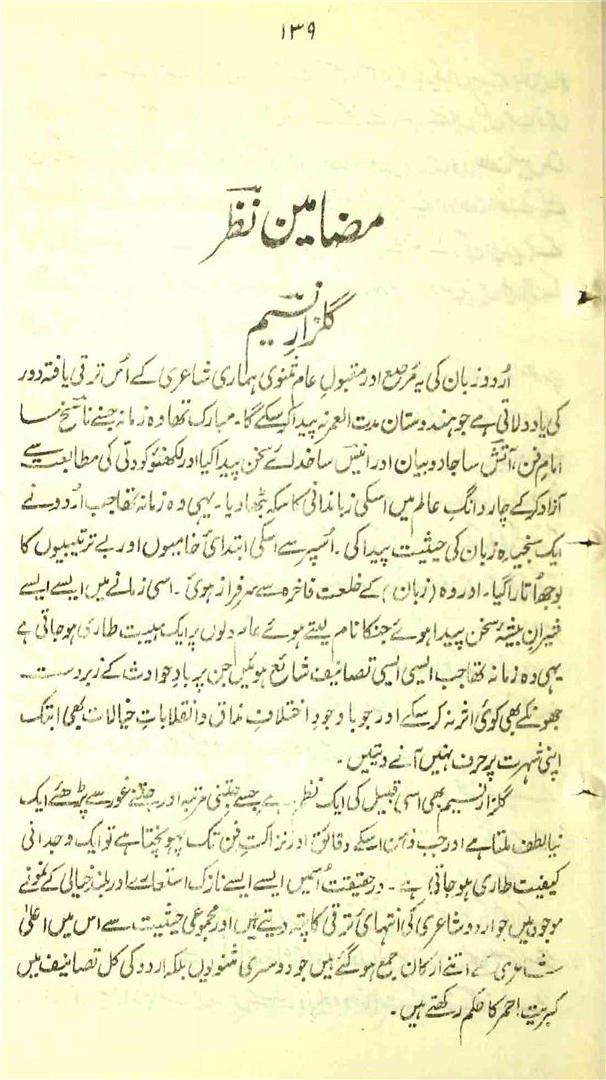 ۱۳۹
مضامین نظر
گلزارِ نسیم
اُردو زبان کی یہ مُرصّع اور مقبولِ عام مثنوی ہماری شاعری کے اُس ترقی یافتہ دور
کی یاد دلاتی ہے جو ہندوستان مدت العمر نہ پیدا کر سکے گا۔ مبارک تھا وہ زمانہ جسنے ناسخ سا
امامِ فن، آتش سا جادو بیان اور انیس سا خدائے سخن پیدا کیا اور لکھنؤ کو دلی کی متابعت سے
آزاد کر کے چار دانگِ عالم میں اسکی زباندانی کا سکہ بٹھا دیا۔ یہی وہ زمانہ تھا جب اُردو نے
ایک سنجیدہ زبان کی حیثیت پیدا کی۔ اُسپر سے اسکی ابتدائی خامیوں اور بے ترتیبیوں کا
بوجھ اُتارا گیا۔ اور وہ (زبان) کے خلعت فاخرہ سے سرفراز ہوئی۔ اسی زمانے میں ایسے ایسے
شیرانِ بیشۂ سخن پیدا ہوئے جنکا نام لیتے ہوئے عام دلوں پر ایک ہیبت طاری ہو جاتی ہے
یہی وہ زمانہ تھا جب ایسی ایسی تصانیف شائع ہوئیں جن پر بادِ حوادث کے زبردست
جھونکے بھی کوئی اثر نہ کر سکے اور جو باوجودِ اختلافِ مذاق و انقلاباتِ خیالات بھی ابتک
اپنی شہرت پر حرف نہیں آنے دیتیں۔
گلزارِ نسیم بھی اسی قبیل کی ایک نظم ہے جسے جتنی مرتبہ اور جتنے غور سے پڑھئے ایک
نیا لطف ملتا ہے اور جب ذہن اسکے دقائق اور نزاکتِ فن تک پہونچتا ہے تو ایک وجدانی
کیفیت طاری ہو جاتی ہے۔ درحقیقت اُسمیں ایسے ایسے نازک استعارے اور بلند خیالی کے نمونے
موجود ہیں جو اردو شاعری کی انتہائی ترقی کا پتہ دیتے ہیں اور مجموعی حیثیت سے اس میں اعلیٰ
شاعری کے اتنے ارکان جمع ہو گئے ہیں جو دوسری مثنویوں بلکہ اردو کی کل تصانیف میں
کبریتِ احمر کا حکم رکھتے ہیں۔